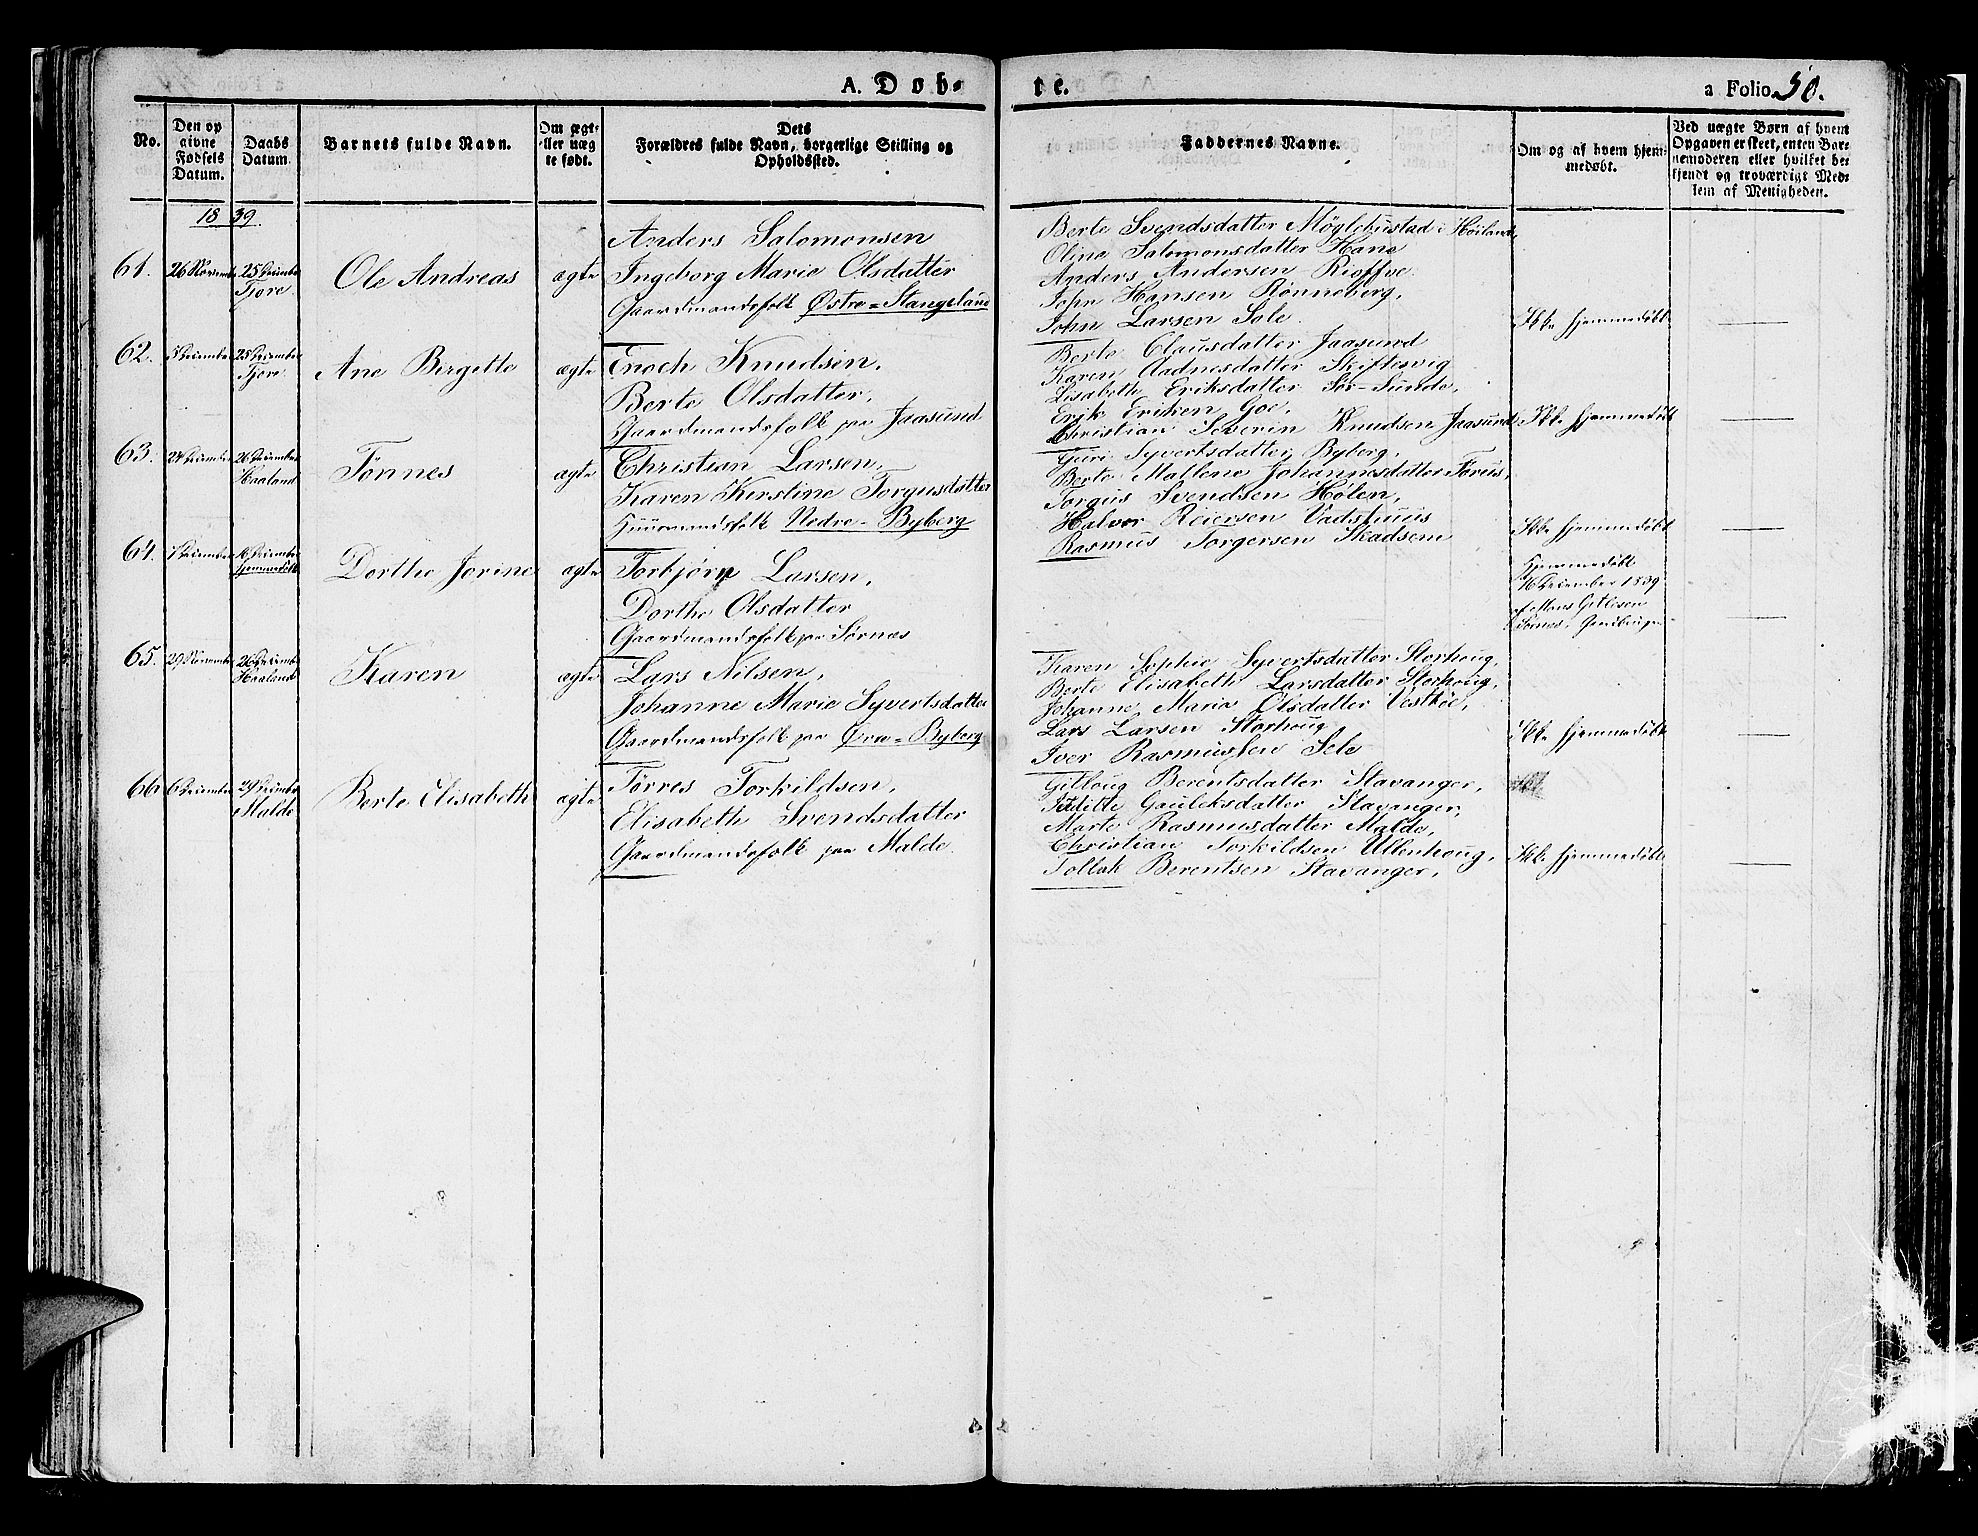 A. Døb-
te.
a Folio 50.
No.
Den op
givne
Fødsels
Datum.
Daabs
Datum
Barnets fulde Navn.
Om ægt-
eller uæg
te født.
Dets
Forældres fulde Navn, borgerlige Stilling og
Opholdssted.
Faddernes Navne.
Om og af hvem hjem-
medøbt.
Ved uægte Børn af hvem
Opgaven er skeet, enten Bar-
nemoderen eller hvilket be-
kjendt og troværdigt Med-
lem af Menigheden.
1839.
61.
26 November
25 December
Tjore.
Ole Andreas
ægte
Anders Salomonsen
Ingeborg Marie Olsdatter
Gaardmandsfolk Østre=Stangeland
Berte Svendsdatter Möglebustad i Høiland,
Oline Salomonsdatter Hane
Anders Andersen
John Hansen Rønneberg,
John Larsen Sole.
Ikke hjemmedøbt
62.
5 December
25 December
Tjore.
Ane Bergitte
ægte
Enoch Knudsen,
Berte Olsdatter,
Gaardmandsfolk paa Jaasund
Berte Clausdatter Jaasund
Karen Aadnesdatter Skiftesvig
Lisabeth Eriksdatter Sør=Sunde,
Erik Eriksen Goe,
Christian Severin Knudsen Jaasund
Ikke hjemmedøbt
63.
26 December
Haaland
Tønnes
ægte
Christian Larsen,
Karen Kirstine Torgusdatter
Huusmandsfolk Nedre=Byberg
Guri Syvertsdatter Byberg,
Berte Mallene Johannesdatter
Torgus Svendsen Hølen,
Halvor Reiersen Vadshuus
Rasmus Torgersen Skadsem
Ikke hjemmedøbt
64.
16 December
hjemmedøbt
Dorthe Jorine
ægte
Torbjørn Larsen,
Dorthe Olsdatter
Gaardmandsfolk paa Sørnæs
Hjemmedøbt
16 December 1839
af Mons Gitlesen
Sørnæs,
65.
29 November
26 December
Haaland
Karen
ægte
Lars Nilsen,
Johanne Marie Syvertsdatter
Gaardmandsfolk paa Øvre=Byberg
Karen Sophie Syvertsdatter Storhoug,
Berte Elisabeth Larsdatter Storhoug,
Johanne Maria Olsdatter Vestbøe,
Lars Larsen Storhoug
Iver Rasmussen Sele
Ikke hjemmedøbt
66
6 December
29 December
Malde
Berte Elisabeth
ægte
Tørres Torkildsen,
Elisabeth Svendsdatter
Gaardmandsfolk paa Malde.
Gitloug Berentsdatter Stavanger,
Gauleksdatter Stavanger,
Marte Rasmusdatter Malde,
Christian Torkildsen Ullenhoug,
Tollak Berentsen Stavanger,
Ikke hjemmedøbt